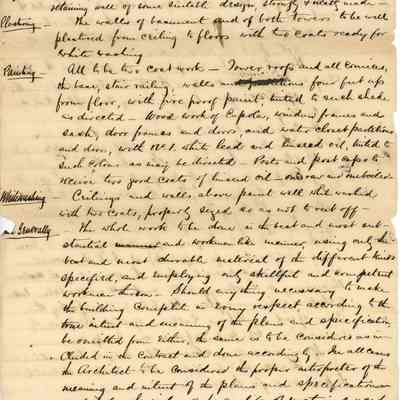 retaining wall of some suitable design, strongly & neatly made —
Plastering — The walls of basement and of both towers to be well
plastered from ceiling to floors with two coats ready for
white washing
Painting — All to be two coat work — Tower, roofs and all cornices,
the base, stair railing, walls and partitions four feet up
from floor, with fire proof paint, tinted to such shade
as directed — Wood work of Cupolas, window frames and
sash, door frames and doors, and water closet partitions
and doors, with No 1 white lead and linseed oil, tinted to
such colors as may be directed — Posts and post caps to
receive two good coats of linseed oil —
Whitewashing Ceilings and walls above paint well whitewashed
with two coats, properly sized so as not to rub off —
Generally The whole work to be done in the best and most sub-
stantial manner and workman like manner, using only the
best and most durable material of the different kinds
specified, and employing only skillful and competent
workmen thereon — Should anything necessary to make
the building complete in every respect according to the
true intent and meaning of the plans and specification
be omitted from either, the same is to be considered as in-
cluded in the contract and done accordingly — In all cases
the Architect to be considered the proper interpreter of the
meaning and intent of the plans and specifications